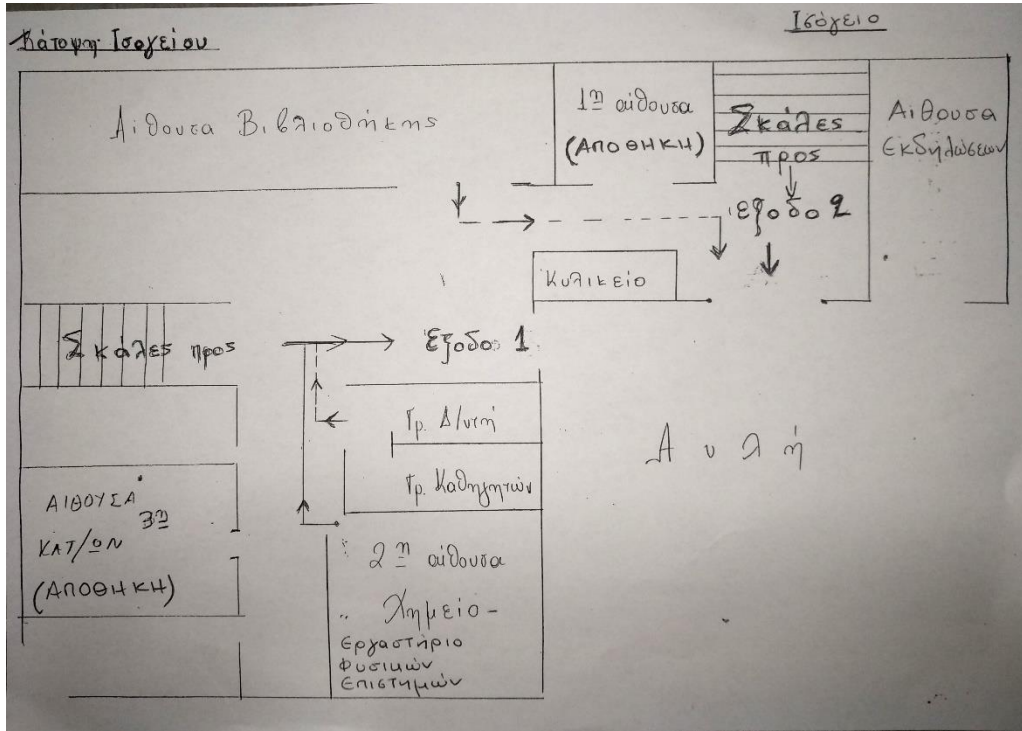 Κάτοψη Ισογείου
Ισόγειο
Αίθουσα Βιβλιοθήκης
1η αίθουσα
(ΑΠΟΘΗΚΗ)
Σκάλες
προς
έξοδο 2
Αίθουσα
Εκδηλώσεων
Κυλικείο
Σκάλες προς
έξοδο 1
Γρ. Δ/ντή
Γρ. Καθηγητών
Αυλή
ΑΙΘΟΥΣΑ
3η
ΚΑΤ/ΩΝ
(ΑΠΟΘΗΚΗ)
2η αίθουσα
Χημείο -
Εργαστήριο
Φυσικών
Επιστημών